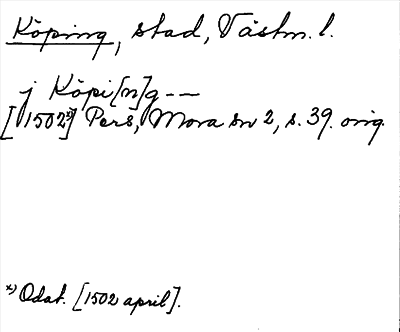 Köping, stad, Västm. l.
j Köpi[n]g --
[1502*)] Pers, Mora sn 2, s. 39. orig.
*) Odat. [1502 april].